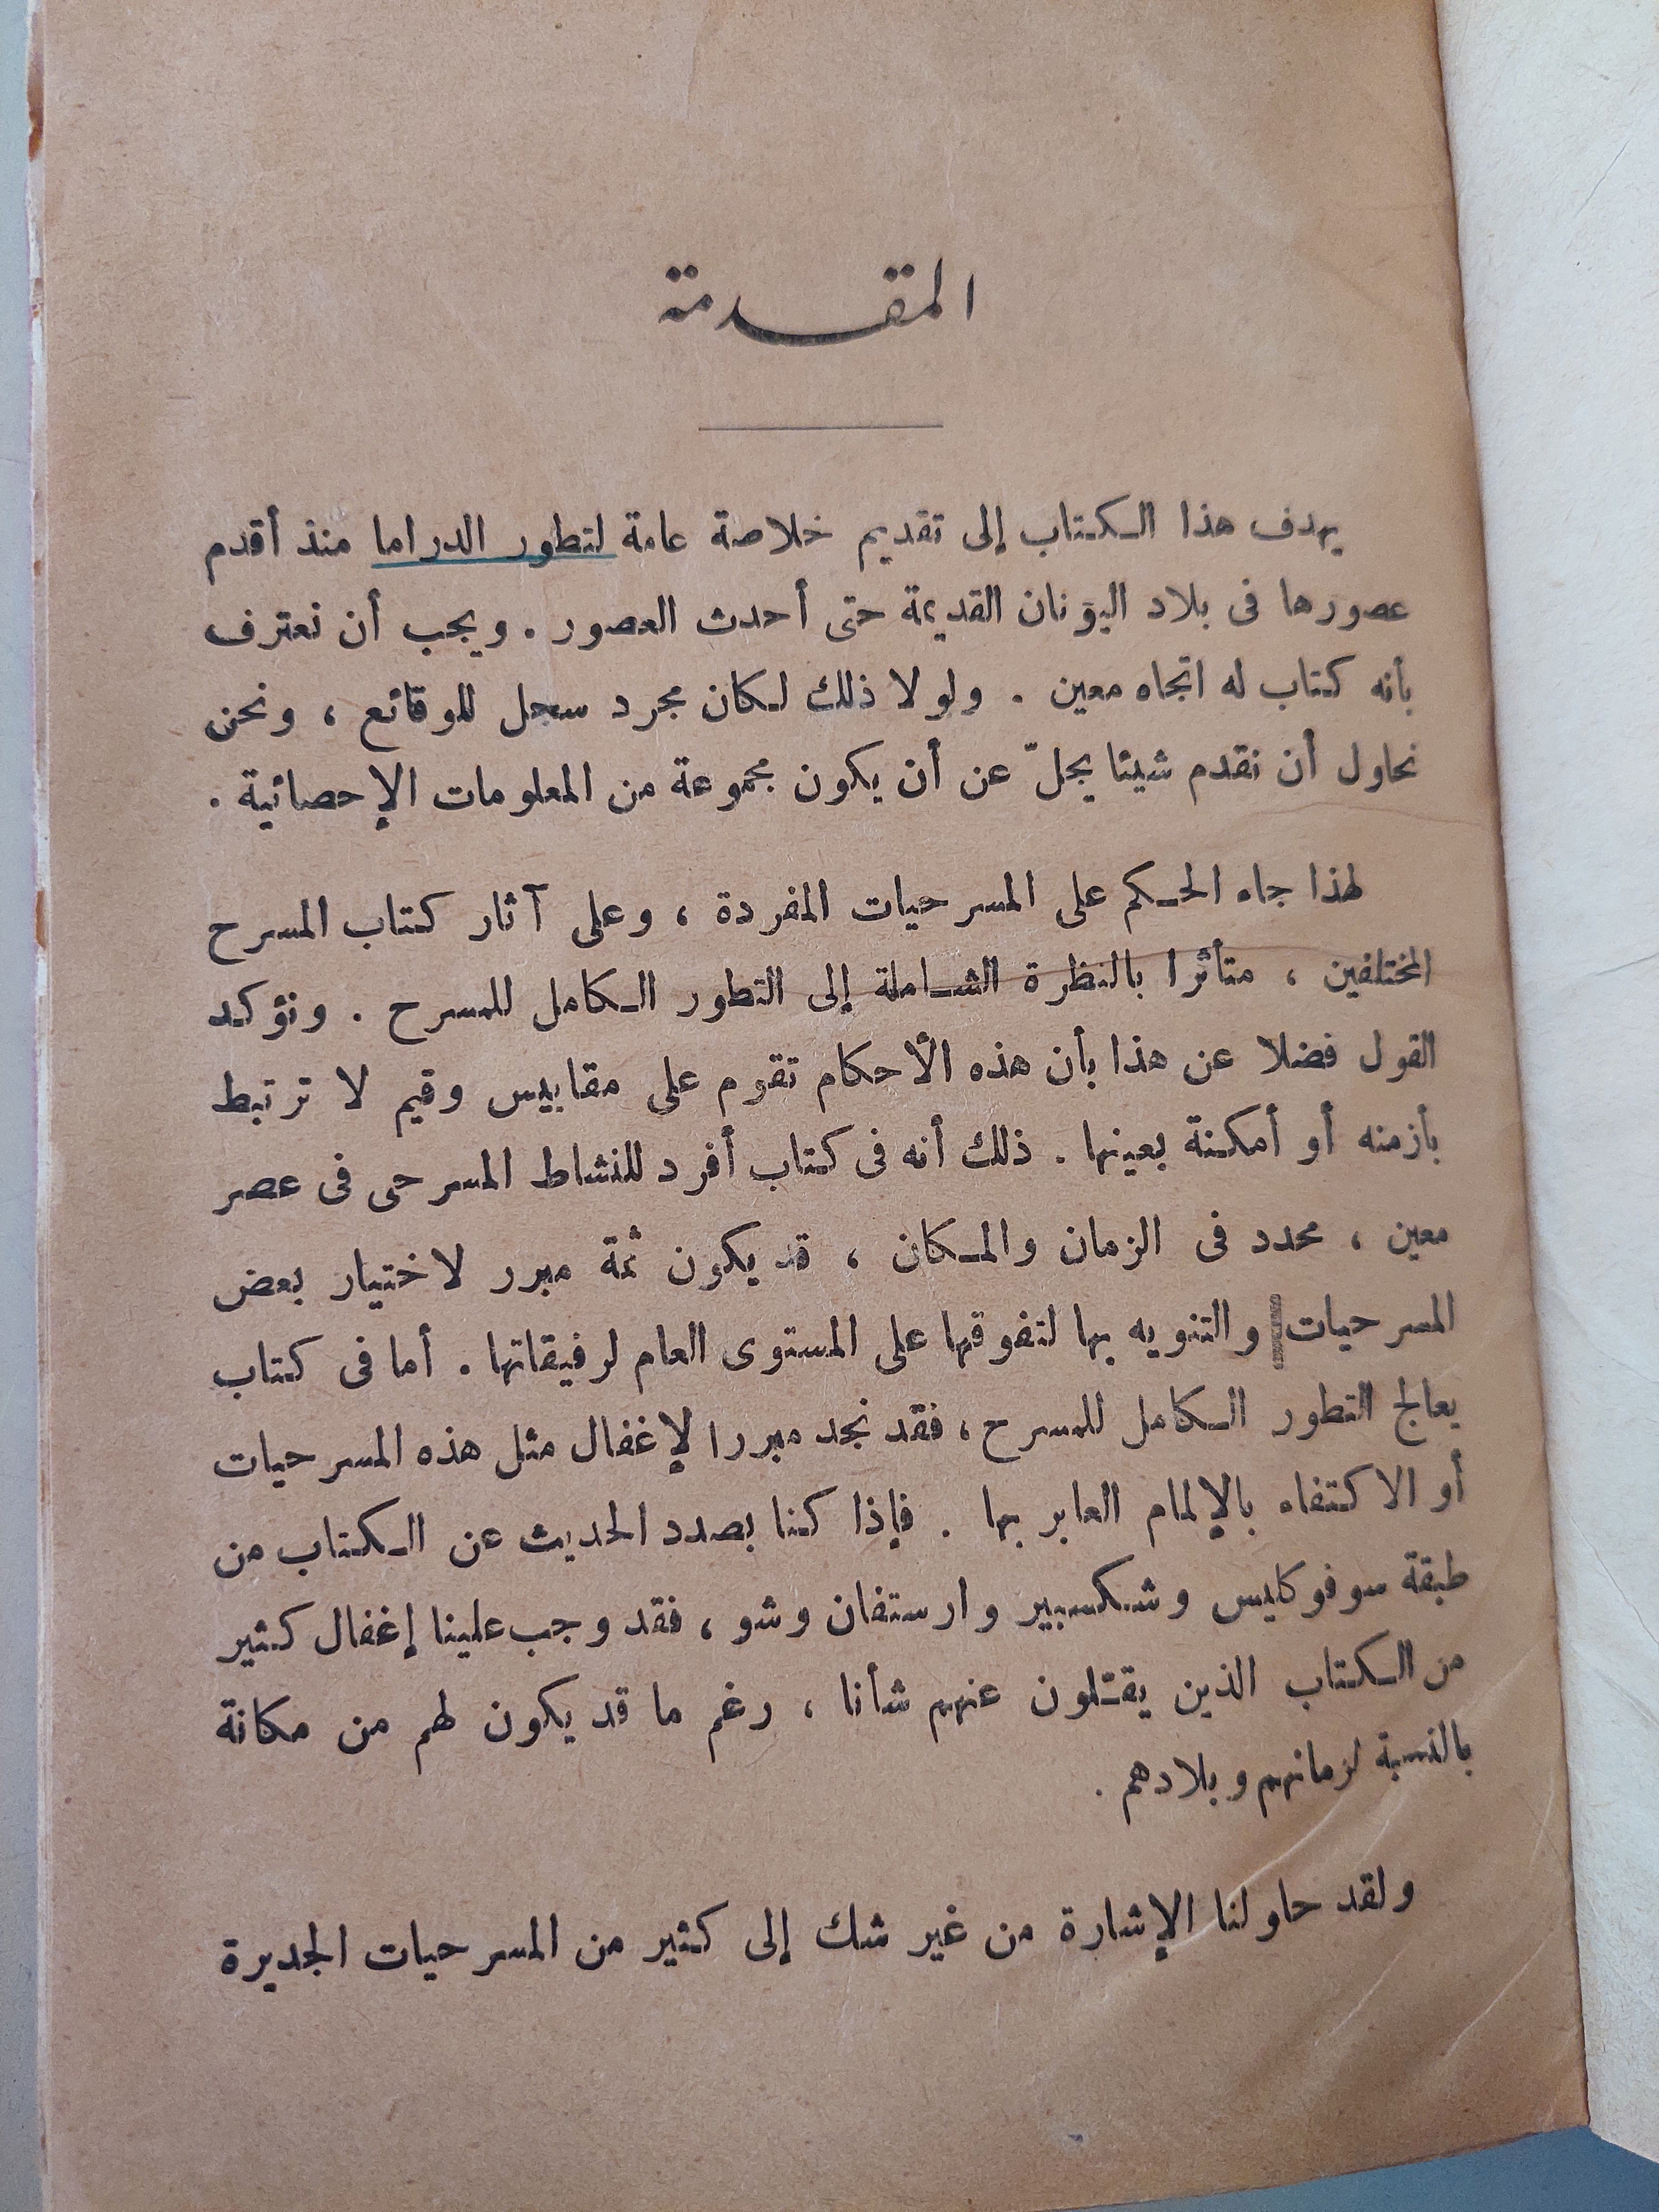 المقدمة
يهدف هذا الكتاب إلى تقديم خلاصة عامة لتطور الدراما منذ أقدم
عصورها فى بلاد اليونان القديمة حتى أحدث العصور . ويجب أن نعترف
بأنه كتاب له اتجاه معين . ولولا ذلك لكان مجرد سجل للوقائع ، ونحن
نحاول أن نقدم شيئا يجلّ عن أن يكون مجموعة من المعلومات الإحصائية .
لهذا جاء الحكم على المسرحيات المفردة ، وعلى آثار كتاب المسرح
المختلفين ، متأثرا بالنظرة الشاملة إلى التطور الكامل للمسرح . ونؤكد
القول فضلا عن هذا بأن هذه الأحكام تقوم على مقاييس وقيم لا ترتبط
بأزمنه أو أمكنة بعينها . ذلك أنه فى كتاب أفرد للنشاط المسرحى فى عصر
معين ، محدد فى الزمان والمكان ، قد يكون ثمة مبرر لاختيار بعض
المسرحيات والتنويه بها لتفوقها على المستوى العام لرفيقاتها . أما فى كتاب
يعالج التطور الكامل للمسرح ، فقد نجد مبررا لإغفال مثل هذه المسرحيات
أو الاكتفاء بالإلمام العابر بها . فإذا كنا بصدد الحديث عن الكتاب من
طبقة سوفوكليس وشكسبير وارستفان وشو ، فقد وجب علينا إغفال كثير
من الكتاب الذين يقلون عنهم شأنا ، رغم ما قد يكون لهم من مكانة
بالنسبة لزمانهم وبلادهم .
ولقد حاولنا الإشارة من غير شك إلى كثير من المسرحيات الجديرة